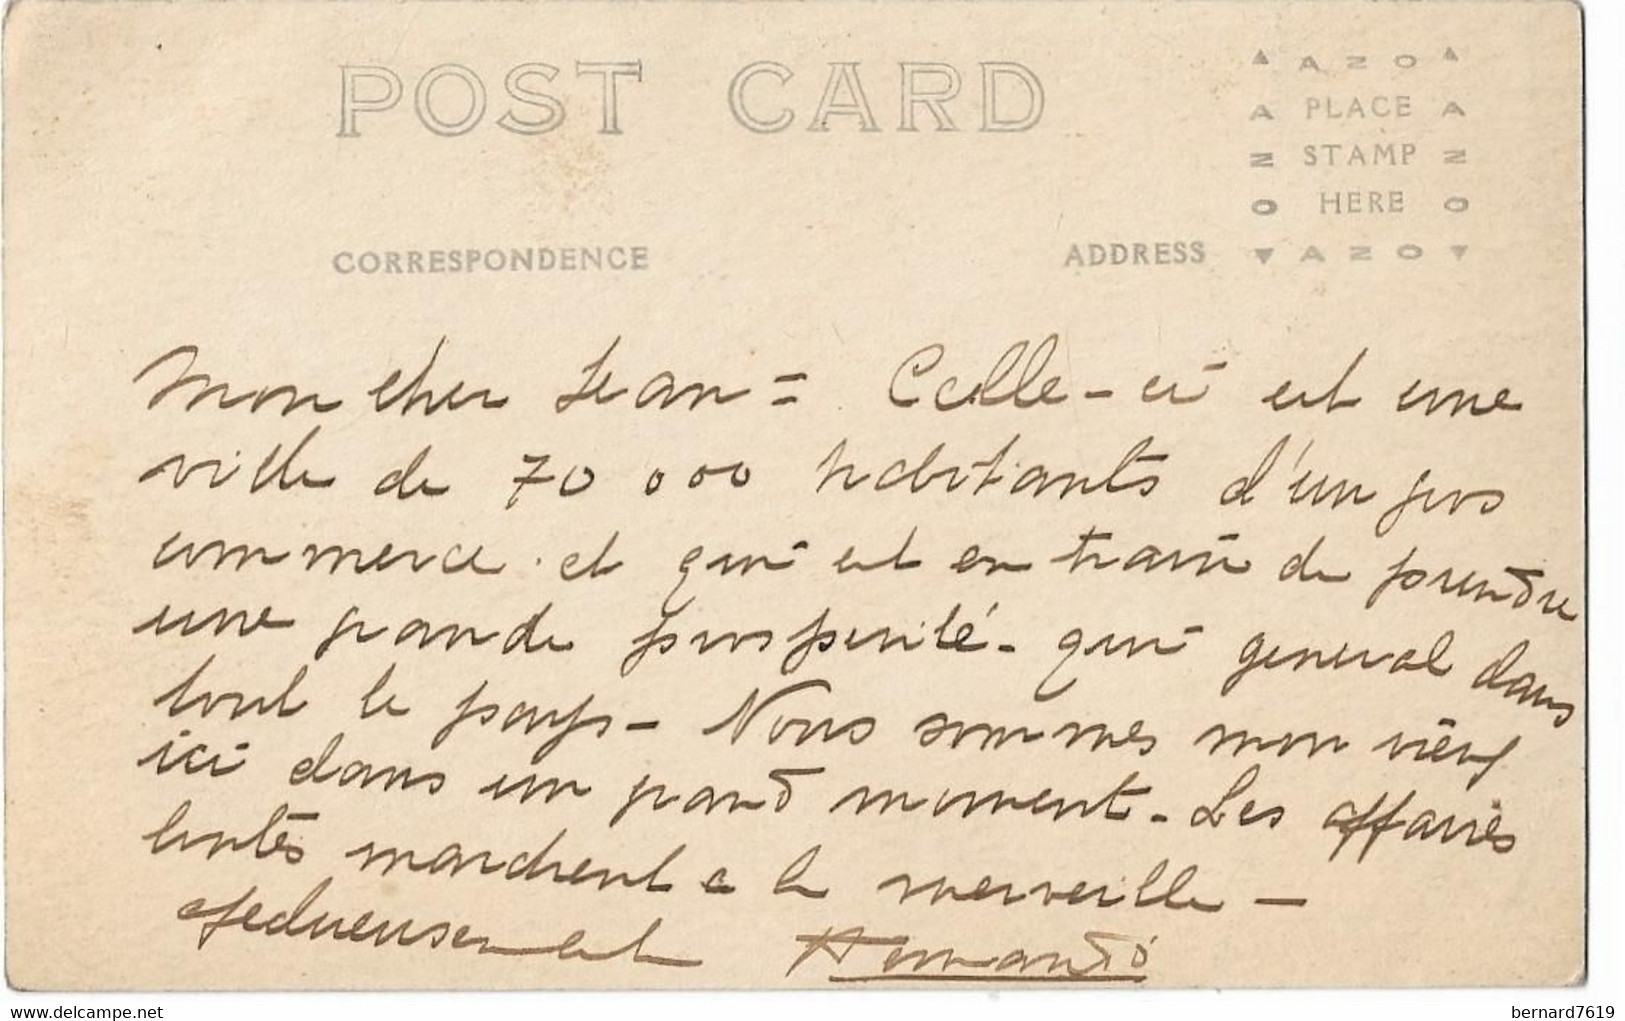 POST CARD
AZO
PLACE
STAMP
HERE
AZO
CORRESPONDENCE
ADDRESS
Mon cher Jean = Celle-ci est une
ville de 70 000 habitants d'un gros
commerce et qui est en train de prendre
une grande prosperité - qui general dans
tout le pays - Nous sommes mon vieux
ici dans un grand moment - Les affaires
toutes marchent a la merveille -
affectueusement
www.delcampe.net
bernard7619